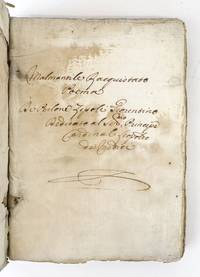 Malmantile Racquistato
Poema
Di Perlone Zipoli Fiorentino
Dedicato al Principe
Cardinale Leopoldo
de Medici